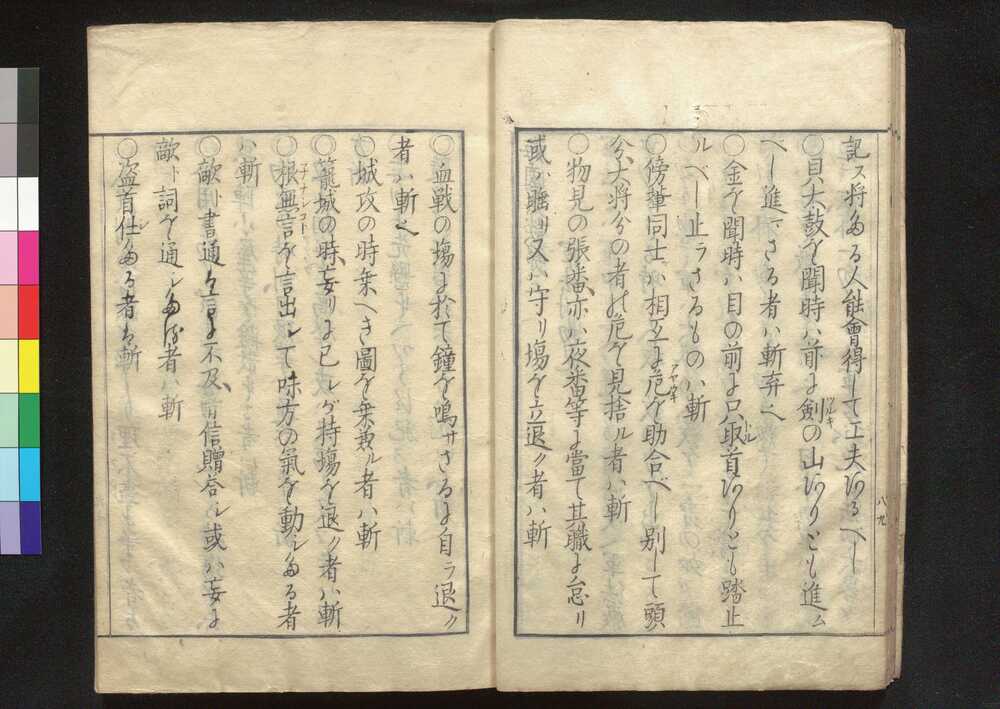 記ス将たる人能會得して工夫あるへし
○貝太鼓を聞時ハ前に剣の山ありとも進ム
へし進まさる者ハ斬弃へし
○金を聞時ハ目の前に只取首ありとも踏止
ルべし止ラさるものハ斬
○傍輩同士ハ相互に危を助合べし別して頭
分大将分の者の危を見捨ル者ハ斬
○物見の張番亦ハ夜番等に當て其職に怠り
或ハ睡り又ハ守リ場を立退ク者ハ斬
○血戦の場に於て鐘を鳴サさるに自ラ退ク
者ハ斬へし
○城攻の時乗へき圖を乗兼ル者ハ斬
○籠城の時妄リに己レが持場を退ク者ハ斬
○根無言を言出して味方の氣を動したる者
ハ斬
○敵ト書通ハ言に不及音信贈答し或ハ妄に
敵ト詞を通したる者ハ斬
○盗首仕たる者も斬
八ノ九